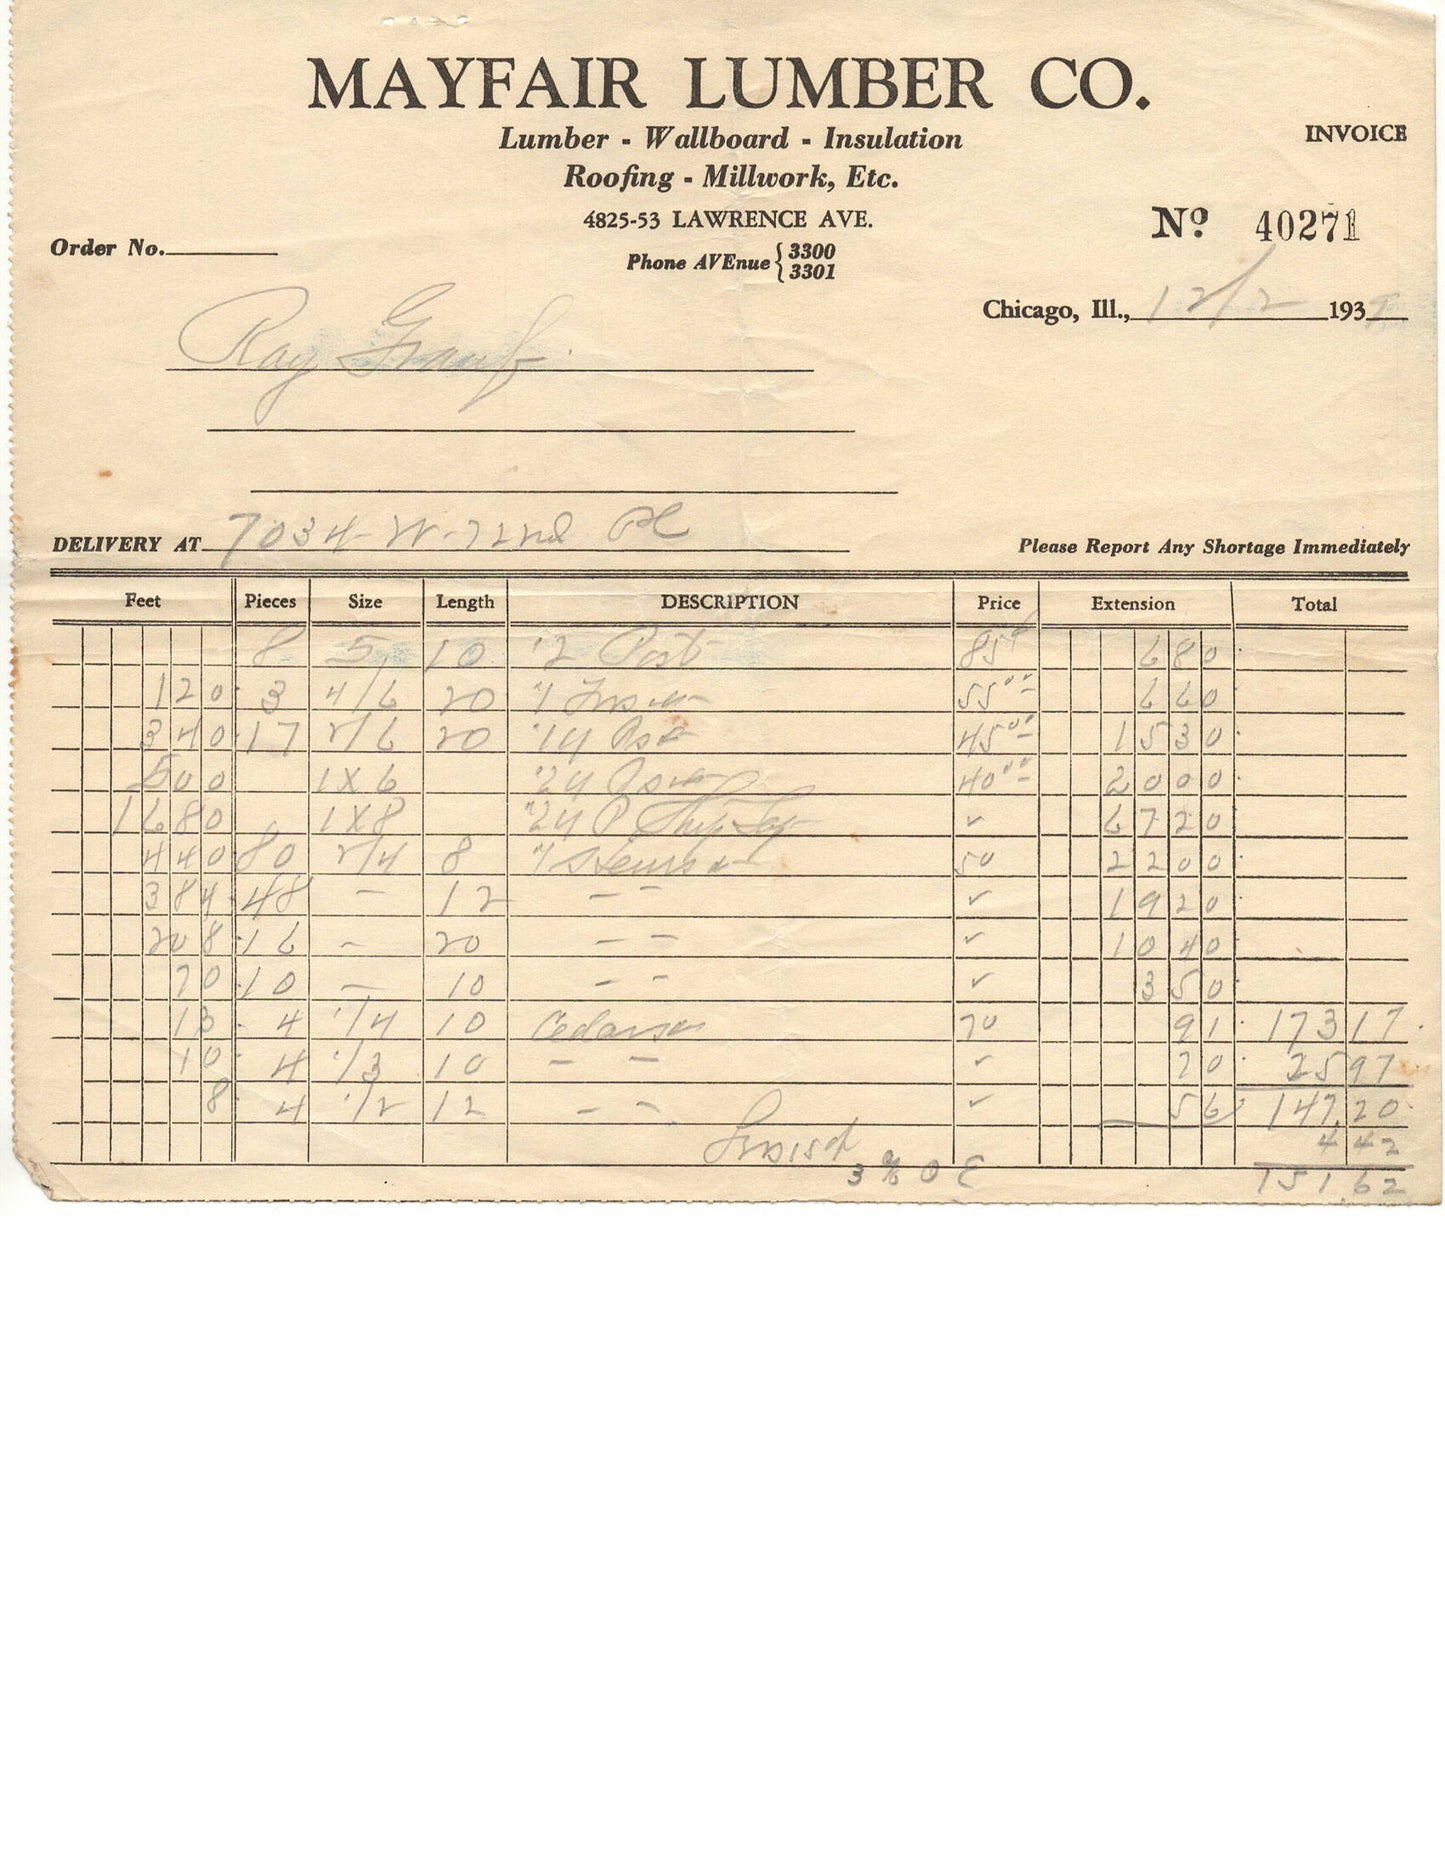 MAYFAIR LUMBER CO.
Lumber - Wallboard - Insulation
INVOICE
Roofing - Millwork, Etc.
4825-53 LAWRENCE AVE.
Nº 40271
Order No.
Phone AVEnue { 3300
3301
Chicago, Ill., 12/2 193
Ray
DELIVERY AT 7034 W-72nd Pl
Please Report Any Shortage Immediately
Feet Pieces Size Length DESCRIPTION Price Extension Total
8 5 10 2 Post 85¢ 680
120 3 4/6 20 55 00 660
340 17 2/6 20 45 00 1530
500 1X6 40 00 2000
1680 1X8 Ship Lap ✓ 6720
440 80 2/4 8 50 2200
384 48 - 12 - - ✓ 1920
208 16 - 20 - - ✓ 1040
70 10 - 10 - - ✓ 350
13 4 1/4 10 70 91 173 17
10 4 1/3 10 - - ✓ 70 25 97
8 4 1/2 12 - - ✓ 56 147.20
4 42
3 % O E 151.62